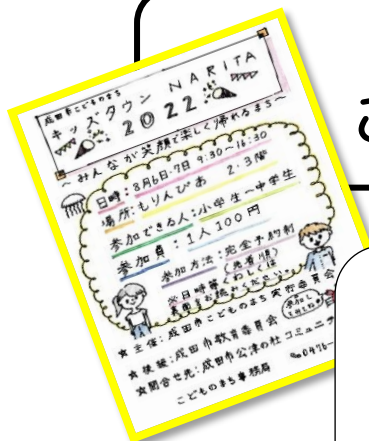 成田市こどものまち
キッズタウン NARITA
2022
～みんなが笑顔で楽しく帰れるまち～
日時：8月6日・7日 9:30～16:30
場所：もりんぴあ 2・3階
参加できる人：小学生～中学生
参加費：1人100円
参加方法：完全予約制
(先着順)
※日時等くわしくは
裏面をお読みください。
☆主催：成田市こどものまち実行委員会
☆後援：成田市教育委員会
☆問合せ先：成田市公津の杜コミュニ
こどものまち事務局
☎0476-